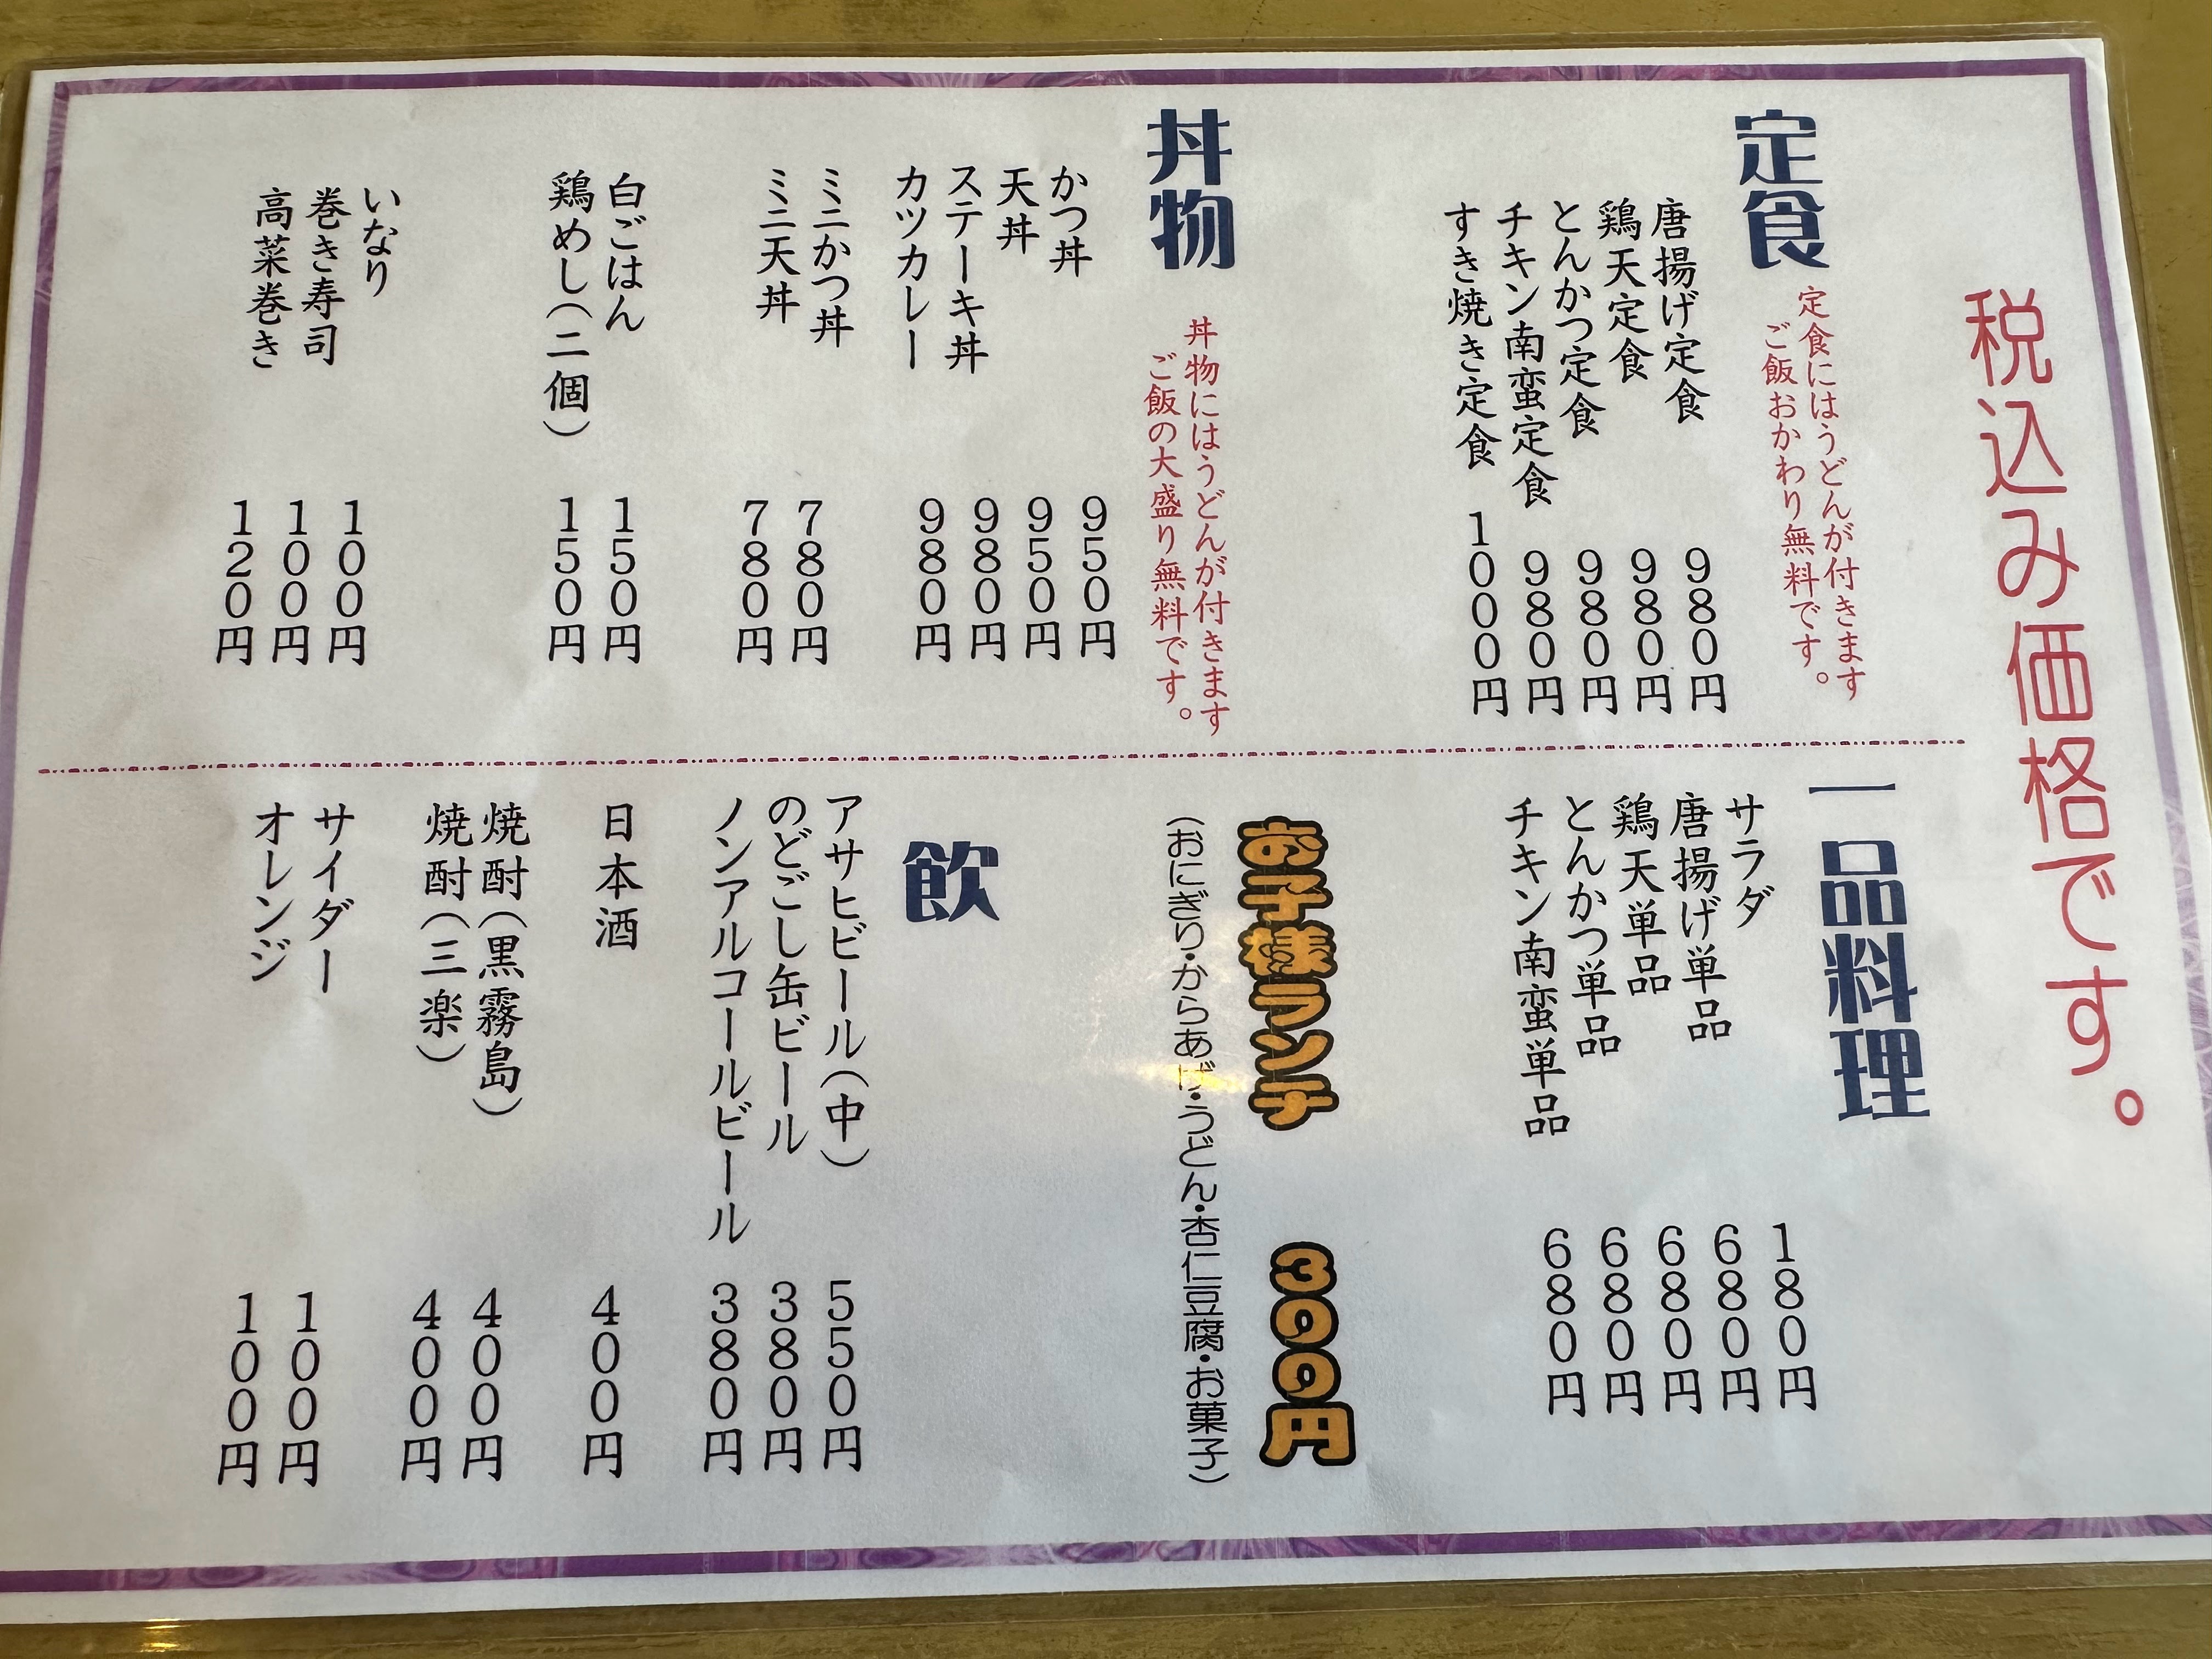 税込み価格です。
定食
定食にはうどんが付きます
ご飯おかわり無料です。
唐揚げ定食 980円
鶏天定食 980円
とんかつ定食 980円
チキン南蛮定食 980円
すき焼き定食 1000円
丼物
丼物にはうどんが付きます
ご飯の大盛り無料です。
かつ丼 950円
天丼 950円
ステーキ丼 980円
カツカレー 980円
ミニかつ丼 780円
ミニ天丼 780円
白ごはん 150円
鶏めし(二個) 150円
いなり 100円
巻き寿司 100円
高菜巻き 120円
一品料理
サラダ 180円
唐揚げ単品 680円
鶏天単品 680円
とんかつ単品 680円
チキン南蛮単品 680円
お子様ランチ 399円
(おにぎり・からあげ・うどん・杏仁豆腐・お菓子)
飲
アサヒビール(中) 550円
のどごし缶ビール 380円
ノンアルコールビール 380円
日本酒 400円
焼酎(黒霧島) 400円
焼酎(三楽) 400円
サイダー 100円
オレンジ 100円